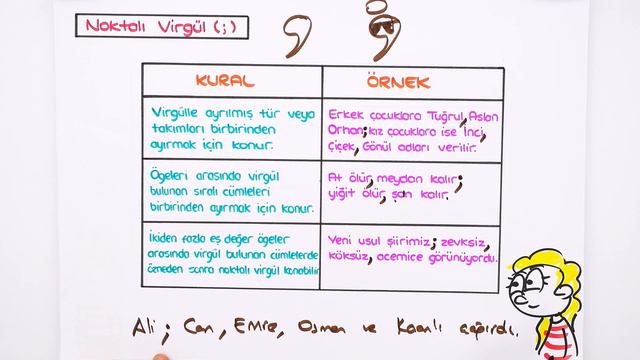 Noktalı Virgül (;)
KURAL
ÖRNEK
Virgülle ayrılmış tür veya
takımları birbirinden
ayırmak için konur.
Erkek çocuklara Tuğrul, Aslan
Orhan; kız çocuklara ise İnci,
Çiçek, Gönül adları verilir.
Ögeleri arasında virgül
bulunan sıralı cümleleri
birbirinden ayırmak için konur.
At ölür, meydan kalır;
yiğit ölür, şan kalır.
İkiden fazla eş değer ögeler
arasında virgül bulunan cümlelerde
özneden sonra noktalı virgül konabilir
Yeni usul şiirimiz; zevksiz,
köksüz, acemice görünüyordu.
Ali; Can, Emre, Osman ve Kaanlı çağırdı.